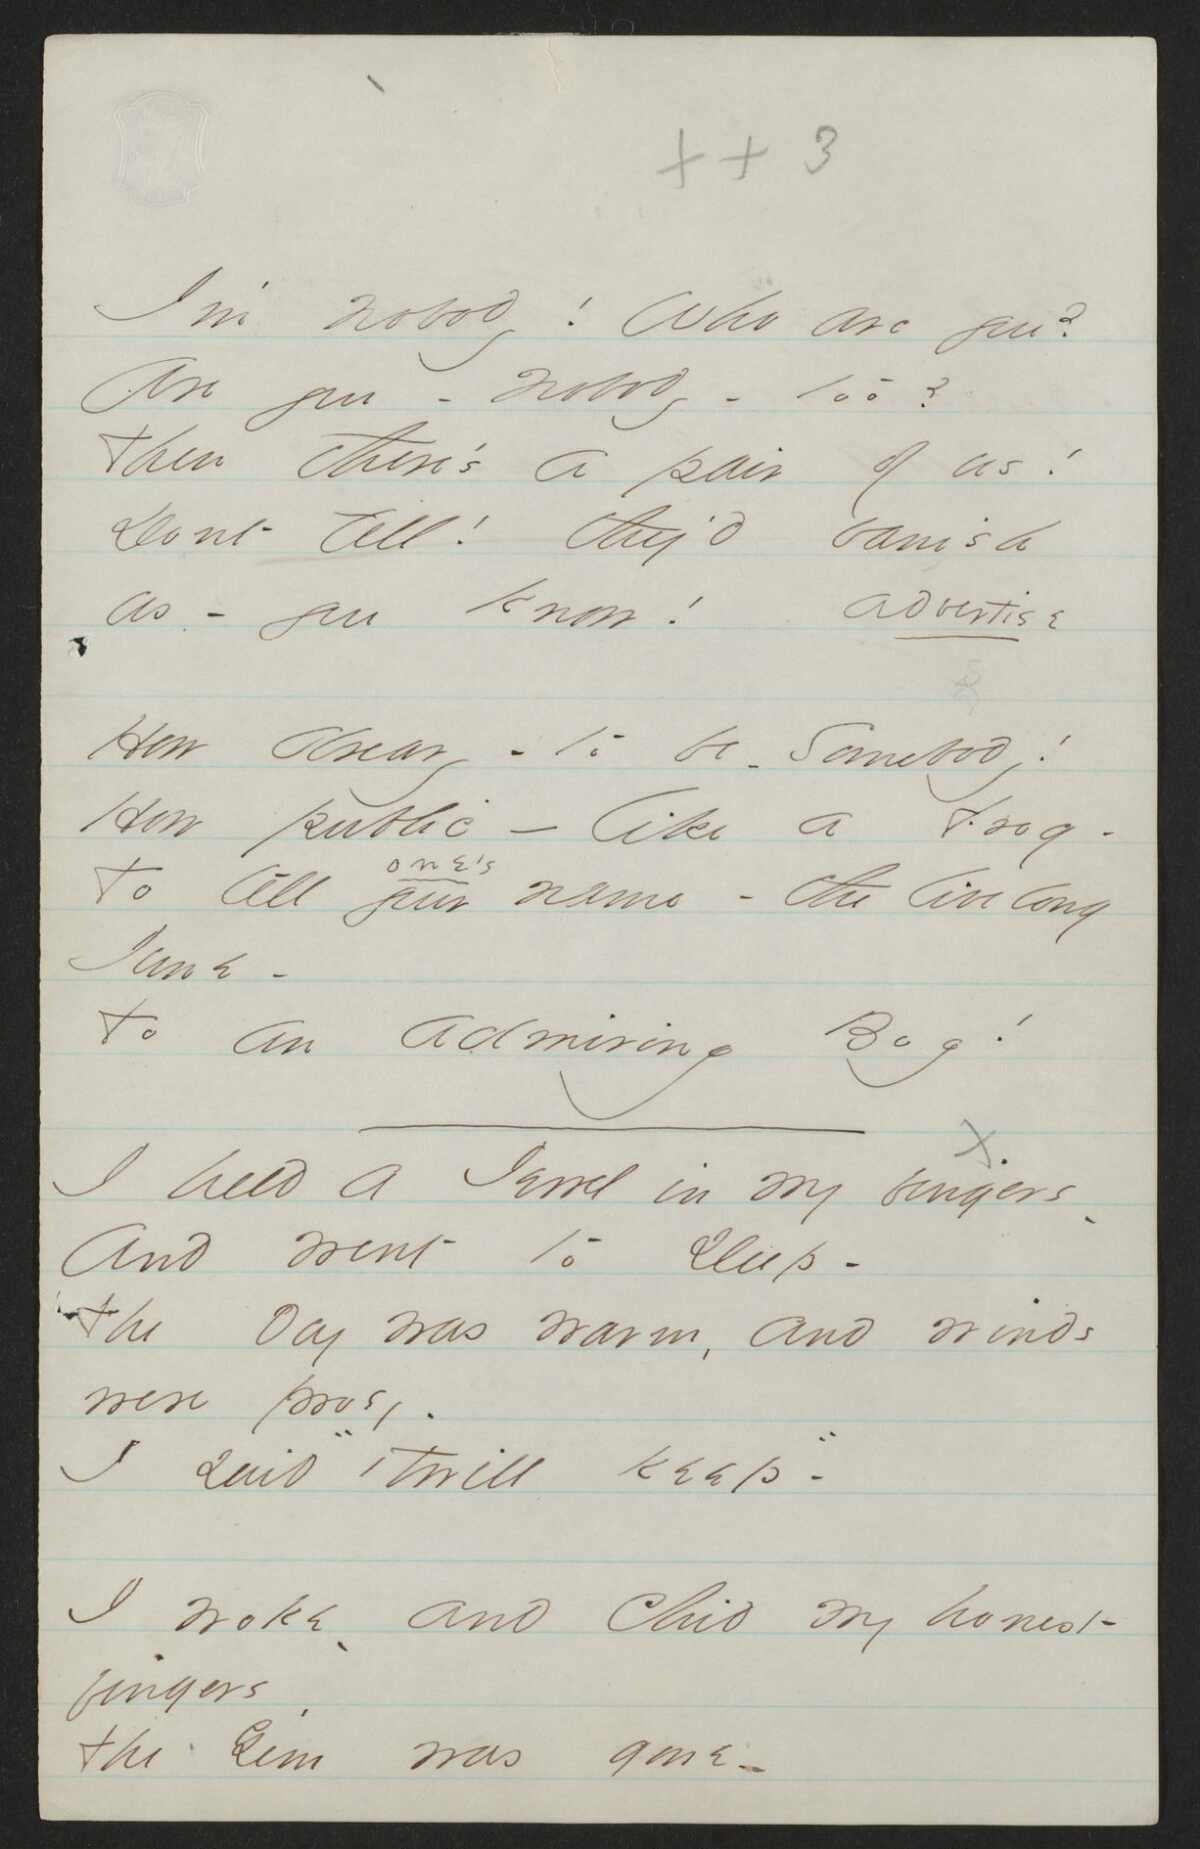 x x 3
I'm nobody! Who are you?
Are you - Nobody - too?
Then there's a pair of us!
Dont tell! they'd banish
us - you know! advertise
How dreary - to be - Somebody!
How public - like a Frog -
one's
To tell your name - the livelong
June -
To an admiring Bog!
x
I held a Jewel in my fingers,
And went to sleep -
The day was warm, and winds
were prosy -
I said "'Twill keep" -
I woke, and chid my honest
fingers,
The Gem was gone -